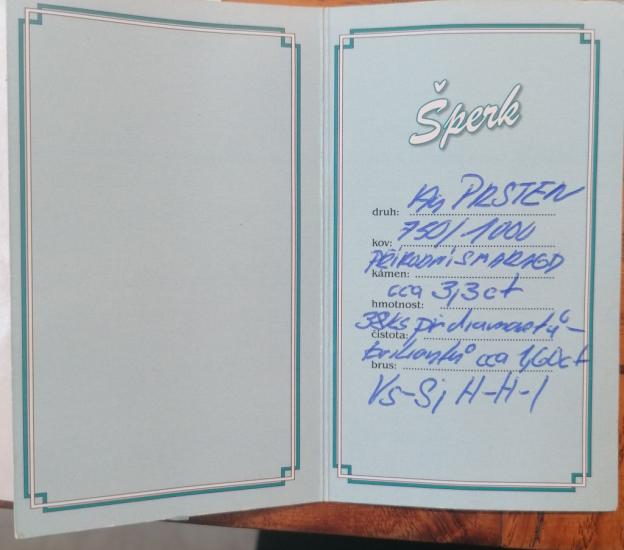 Šperk
druh: Au PRSTEN
kov: 750/1000
kámen: PŘÍRODNÍ SMARAGD
hmotnost: cca 3,3ct
čistota: 38ks př diamantů-
brus: briliantů cca 1,60ct
VS-Si H-H-I